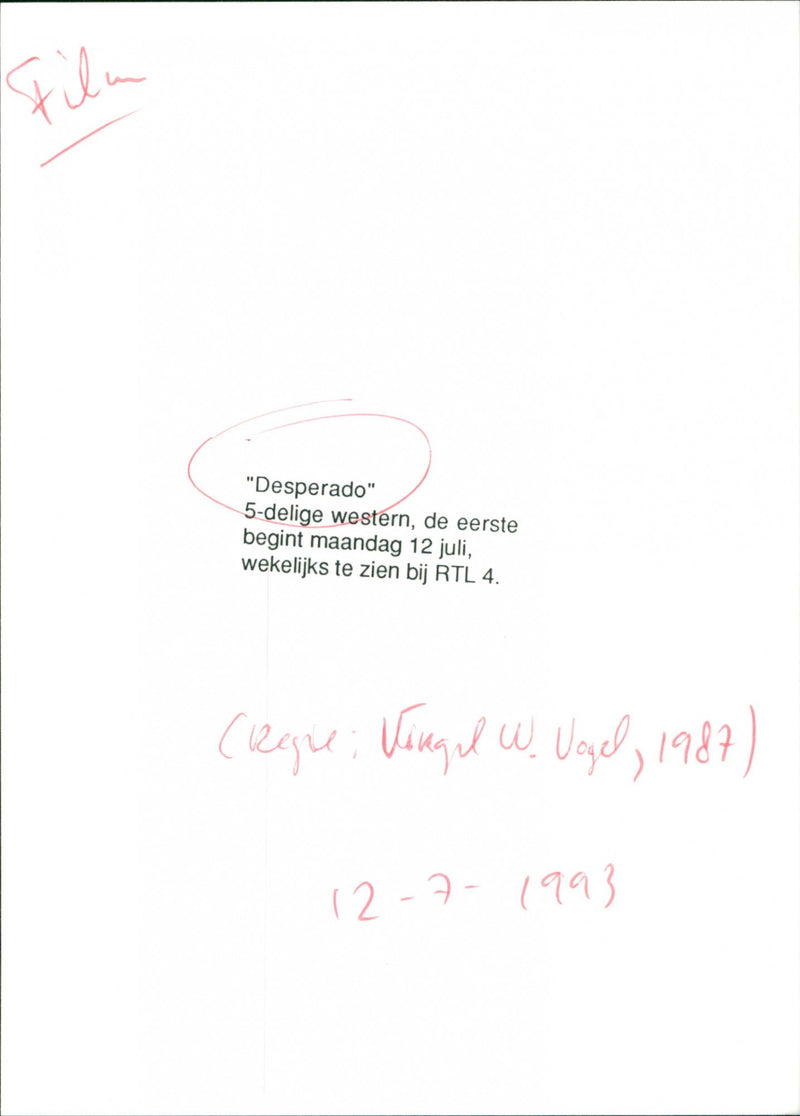 Film
"Desperado"
5-delige western, de eerste
begint maandag 12 juli,
wekelijks te zien bij RTL 4.
(Regie: Virgil W. Vogel, 1987)
12-7-1993